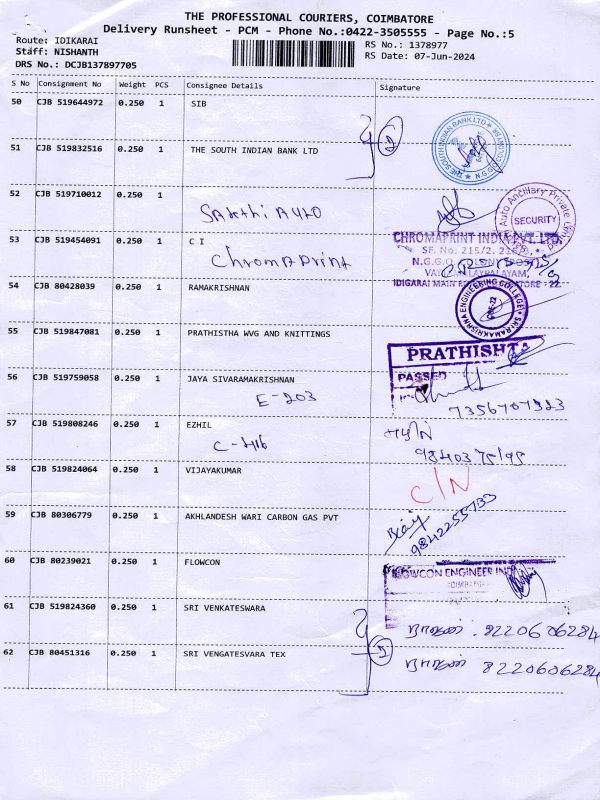 THE PROFESSIONAL COURIERS, COIMBATORE
Delivery Runsheet - PCM - Phone No.:0422-3505555 - Page No.:5
Route: IDIKARAI
Staff: NISHANTH
DRS No.: DCJB137897705
RS No.: 1378977
RS Date: 07-Jun-2024
S No Consignment No Weight PCS Consignee Details Signature
50 CJB 519644972 0.250 1 SIB
51 CJB 519832516 0.250 1 THE SOUTH INDIAN BANK LTD
THE SOUTH INDIAN BANK LTD
52 CJB 519710012 0.250 1
Sakthi Auto
Auto Ancillary Private
SECURITY
53 CJB 519454091 0.250 1 C I
Chromaprint
CHROMAPRINT INDIA PVT. LTD.
SF. No. 215/2, 
N.G.G.O. COLONY
IDIGARAI MAIN
54 CJB 80428039 0.250 1 RAMAKRISHNAN
SRI RAMAKRISHNA ENGINEERING COLLEGE
55 CJB 519847081 0.250 1 PRATHISTHA WVG AND KNITTINGS
PRATHISHTA
PASSED
56 CJB 519759058 0.250 1 JAYA SIVARAMAKRISHNAN
E-203
7356707923
57 CJB 519808246 0.250 1 EZHIL
C-416
9840375195
58 CJB 519824064 0.250 1 VIJAYAKUMAR
C/N
59 CJB 80306779 0.250 1 AKHLANDESH WARI CARBON GAS PVT
9842255733
60 CJB 80239021 0.250 1 FLOWCON
FLOWCON ENGINEER INDIA
61 CJB 519824360 0.250 1 SRI VENKATESWARA
8220606284
62 CJB 80451316 0.250 1 SRI VENGATESVARA TEX
8220606284